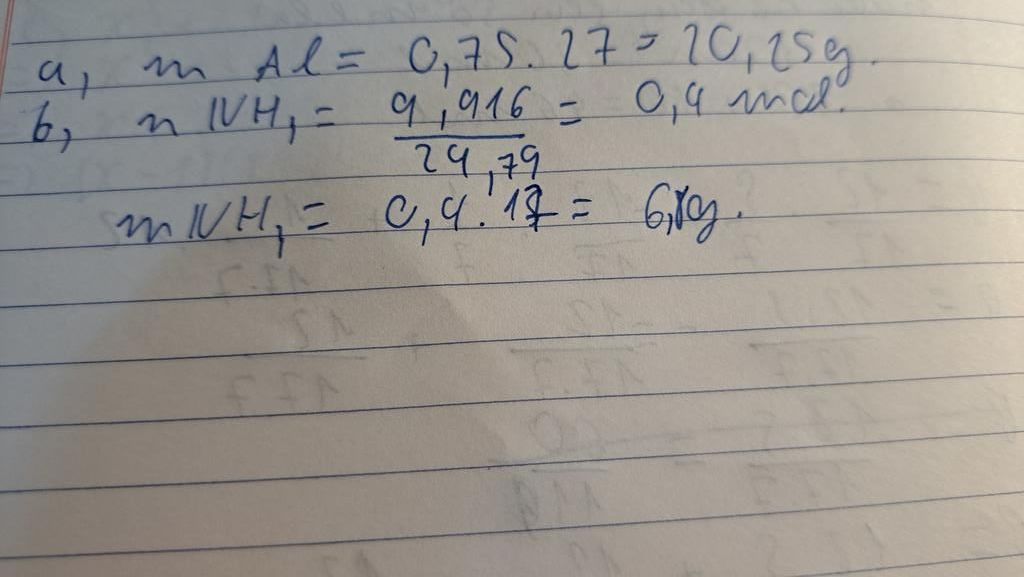 a, m Al = 0,75 . 27 = 20,25g.
b, n NH₃ = 9,916 / 24,79 = 0,4 mol.
m NH₃ = 0,4 . 17 = 6,8g.